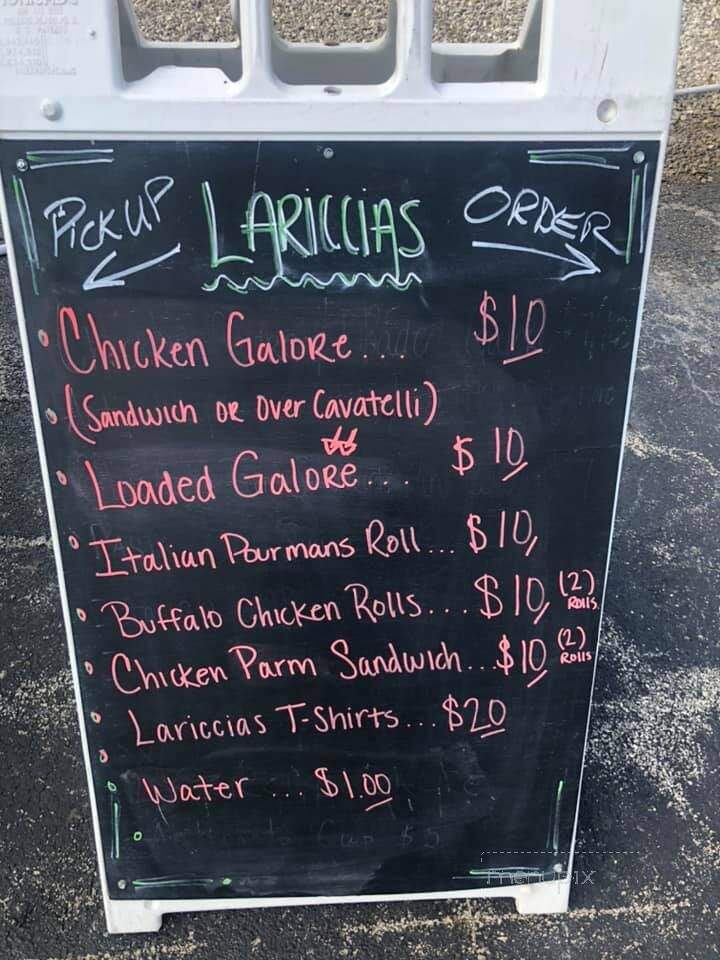 PICK UP LARICCIAS ORDER
Chicken Galore.... $10
(Sandwich OR Over Cavatelli)
Loaded Galore.... $10
Italian Pourmans Roll... $10
Buffalo Chicken Rolls... $10 (2) ROLLS
Chicken Parm Sandwich... $10 (2) ROLLS
Lariccias T-Shirts... $20
Water ... $1.00
Cup $5
menupix